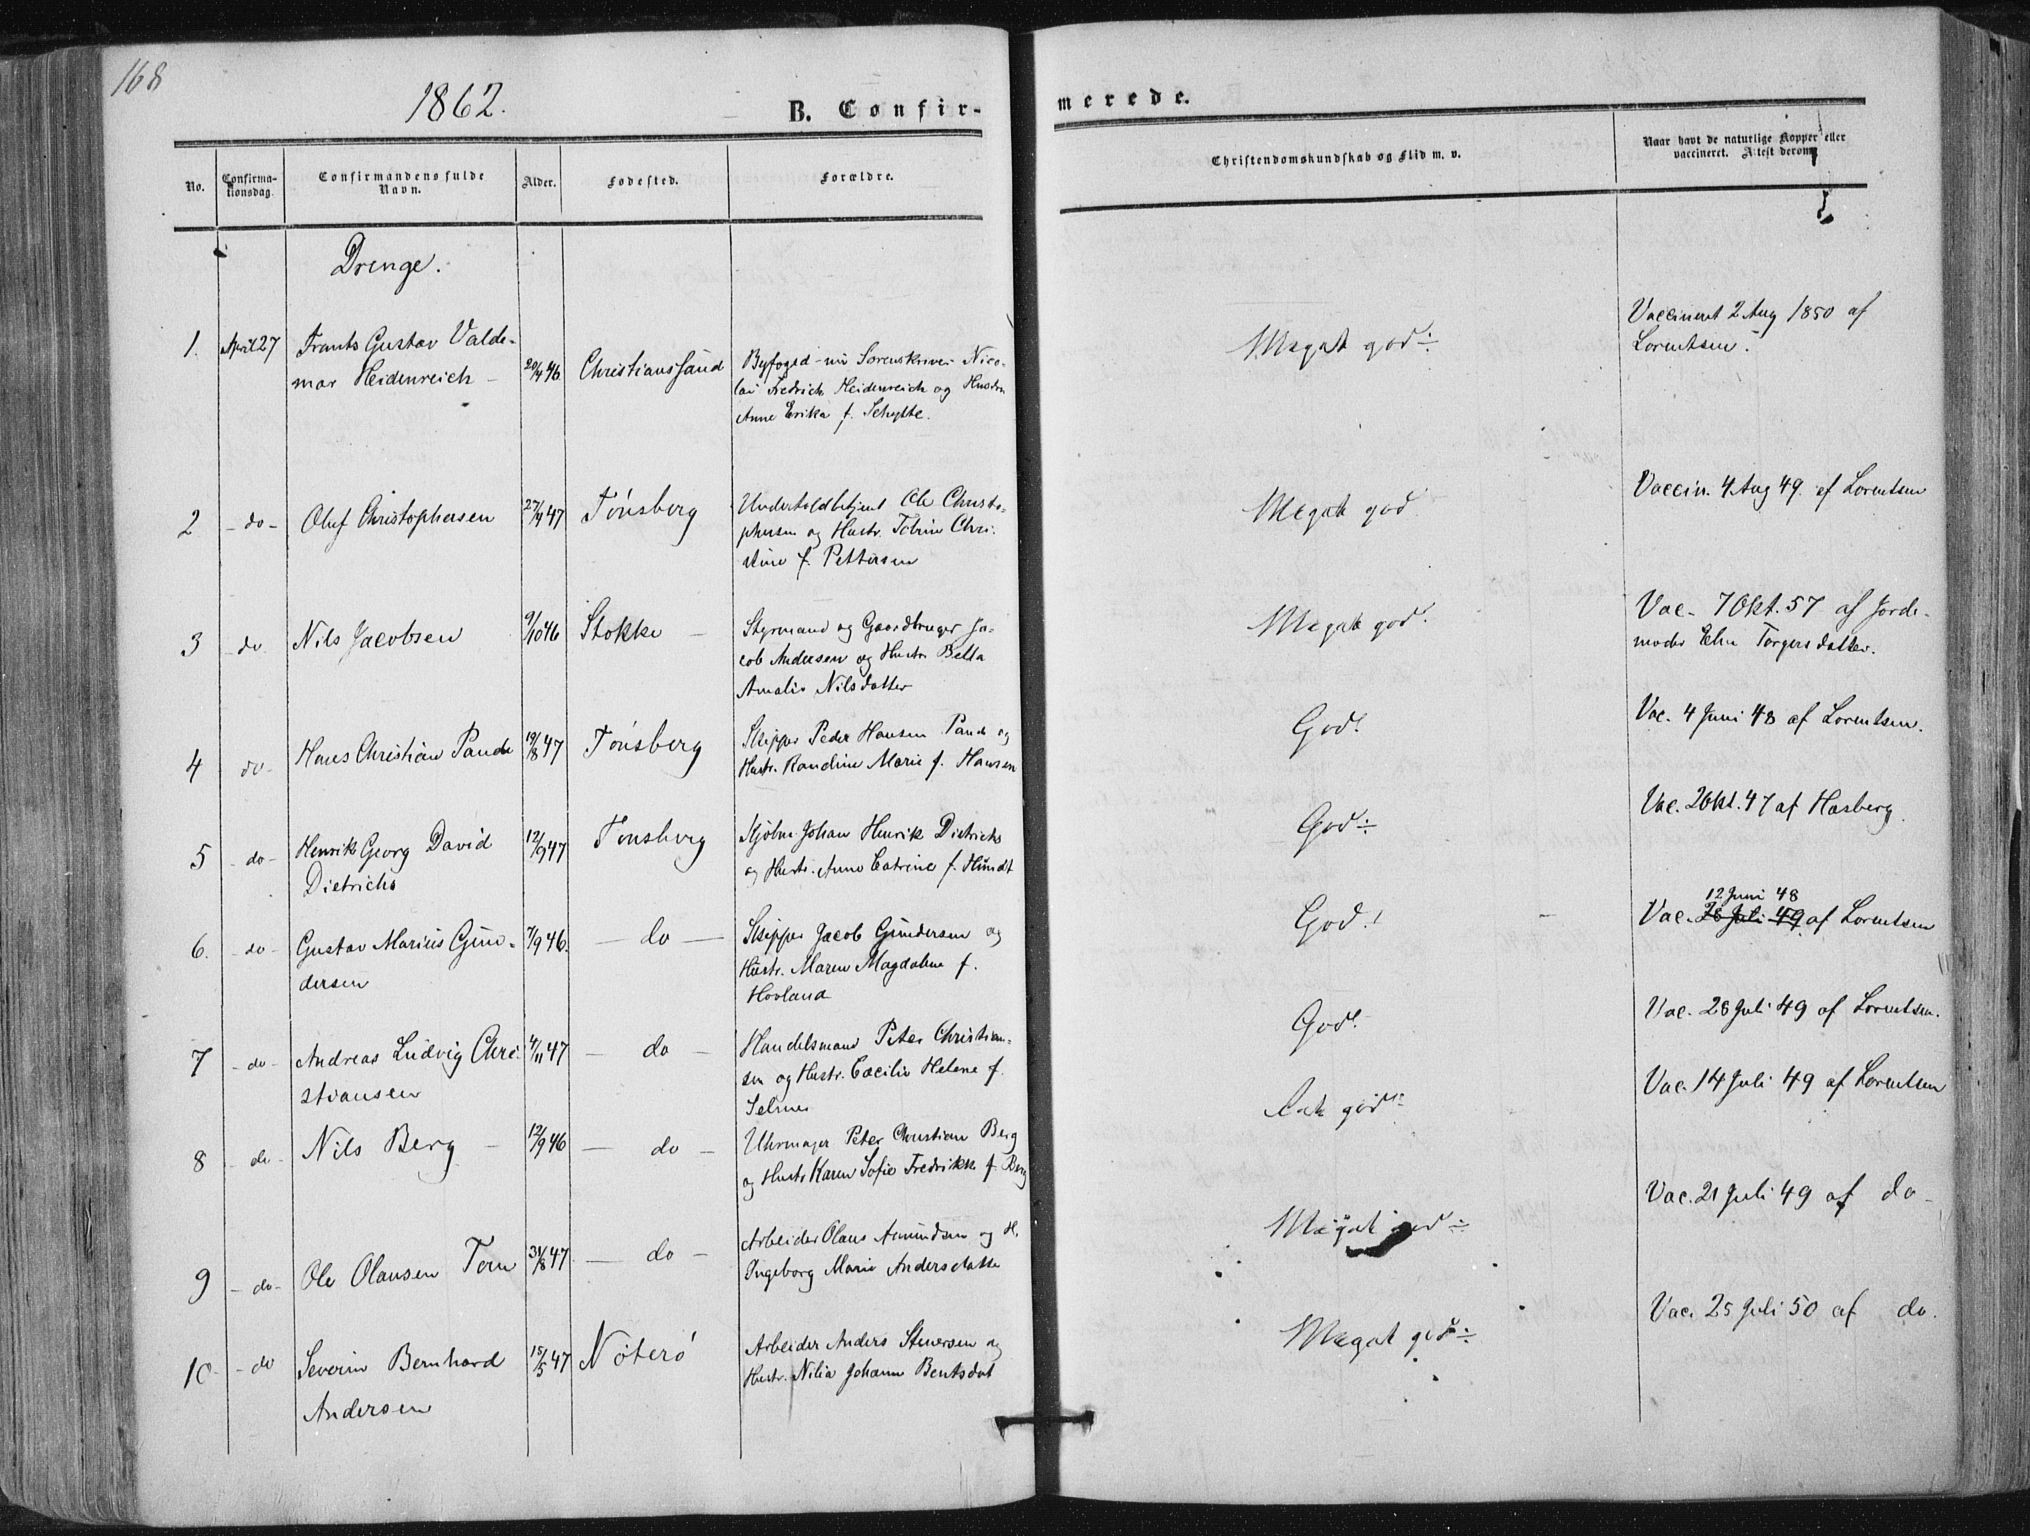 168
1862.
B. Confirmerede.
No.
Confirma-
tionsdag.
Confirmandens fulde
Navn.
Alder.
Fødested.
Forældre.
Christendomskundskab og Flid m. v.
Naar havt de naturlige Kopper eller
vaccineret. Attest derom
Drenge.
1. April 27 Frants Gustav Valde-
mar Heidenreich - 20/4 46 Christianssund
Byfoged - Sorenskriver Nico-
lai Fredrich Heidenreich og Hustru
Anne Erika f. Schytte.
Meget god ÷
Vaccineret 2 Aug 1850 af
Lorentsen.
2 - do - Oluf Christophersen 27/4 47 Tønsberg
Underholdbetjent Ole Christo-
phersen og Hustr. Tobine Chri-
stine f. Pettersen
Meget god
Vaccin. 4 Aug 49. af Lorentsen
3 - do Nils Jacobsen 9/10 46 Stokke -
Styrmand og Gaardbruger Ja-
cob Andersen og Hustr Betta
Amalie Nilsdatter
Meget god!
Vac - 7 Okt. 57 af Jorde-
moder Elen Torgersdatter.
4 do - Hans Christian Pande 19/8 47 Tønsberg
Skipper Peder Hansen Pande og
Hustr. Randine Marie f. Hansen
God!
Vac. 4 Juni 48 af Lorentsen.
5 - do - Henrik Georg David
Dietrichs 12/9 47 Tønsberg
Kjøbm Johan Henrik Dietrichs
og Hustr. Anne Catrine f. Hundt
God ÷
Vac. 2 Okt. 47 af Hasberg
6. - do - Gustav Marius Gun-
dersen 7/9 46. - do -
Skipper Jacob Gundersen og
Hustr. Maren Magdalene f.
Hovland
God!
12 Juni 48
Vac. 28 Juli 49. af Lorentsen
7 - do - Andreas Ludvig Chri-
stiansen 4/11 47 - do -
Handelsmand Peter Christian-
sen og Hustr. Cæcilie Helene f.
Selmer
God!
Vac. 28 Juli 49 af Lorentsen.
8 - do - Nils Berg - 12/9 46 - do -
Uhrmager Peter Christian Berg
og Hustr Karen Sofie Fredrikke f. Berg
god
Vac. 14 Juli 49 af Lorentsen
9 - do - Ole Olausen 31/8 47 - do -
Arbeider Olaus Amundsen og H.
Ingeborg Marie Andersdatter
Meget god ÷
Vac. 21 Juli 49 af do -
10 - do Severin Bernhard
Andersen 15/5 47 Nøterø
Arbeider Anders Stenersen og
Hustr. Nilia Johanne Bentsdat
Meget god ÷
Vac. 25 Juli 50 af do.